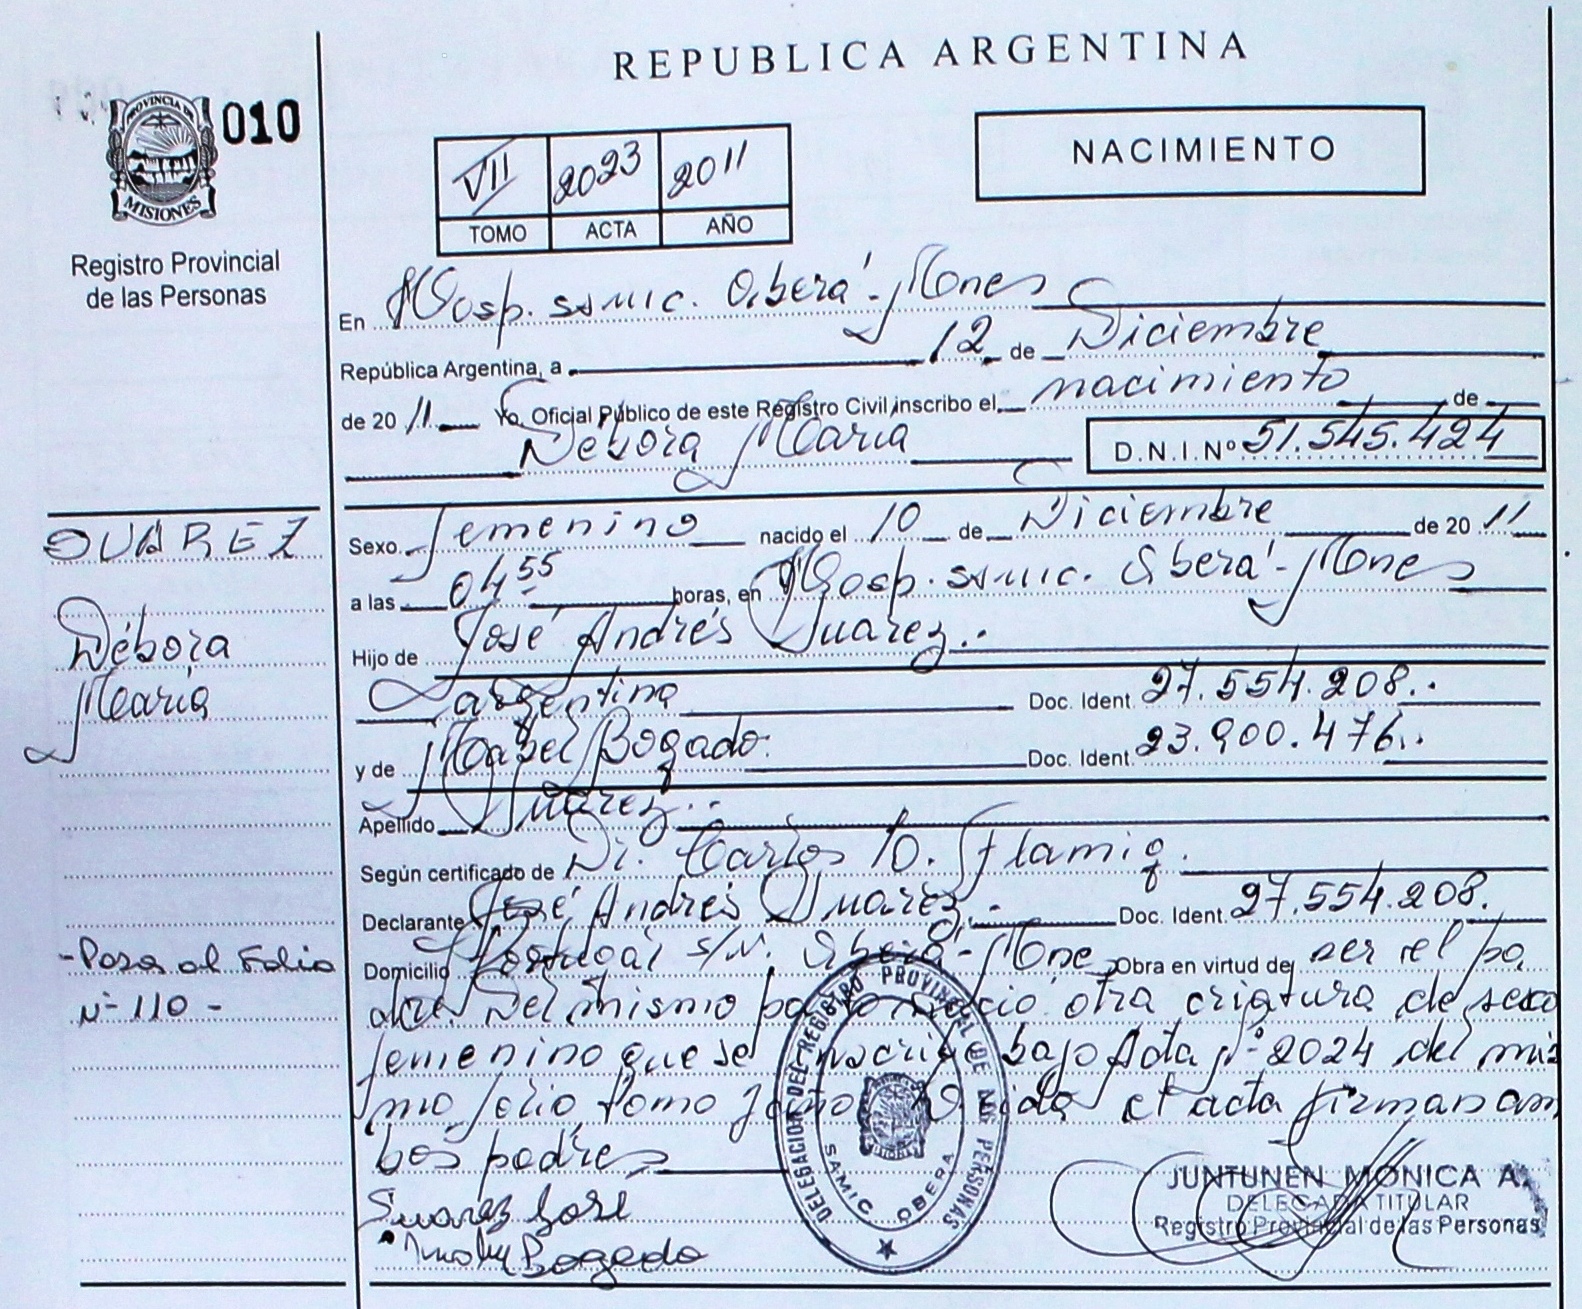 REPUBLICA ARGENTINA
PROVINCIA DE
MISIONES
010
Registro Provincial
de las Personas
VII 2023 2011
TOMO ACTA AÑO
NACIMIENTO
En Hosp. samic. Oberá - Mones
República Argentina, a 12 de Diciembre
de 2011 Yo, Oficial Público de este Registro Civil, inscribo el nacimiento de
Débora María D.N.I. Nº 51.545.424
SUAREZ
Débora
María
Sexo Femenino nacido el 10 de Diciembre de 2011
a las 04 55 horas, en Hosp. samic. Oberá - Mones
Hijo de José Andrés Suarez..
argentina Doc. Ident. 27.554.208..
y de Mabel Bogado. Doc. Ident. 23.900.476..
Apellido Suarez..
Según certificado de Dr. Carlos
Declarante José Andrés Suarez.. Doc. Ident. 27.554.208.
Domicilio Portugal s/N. Oberá - Mone Obra en virtud de ser el pa
dre. Del mismo parto nació otra criatura de sexo
femenino que se inscribe bajo Acta Nº 2024 del mis
mo folio, tomo y año. Leída el acta firman am
bos padres
- Pasa al Folio
Nº 110 -
Suarez José
Bogado
DELEGACION DEL REGISTRO PROVINCIAL DE LAS PERSONAS
SAMIC OBERA
JUNTUNEN MONICA A.
DELEGADA TITULAR
Registro Provincial de las Personas